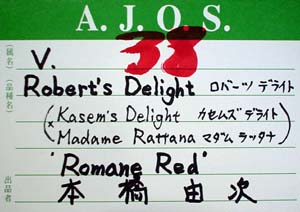 A.J.O.S.
(属名)
V. 38
(品種名)
Robert's Delight ロバーツ デライト
(Kasem's Delight カセムズ デライト
× Madame Rattana マダム ラッタナ)
'Romane Red'
出品者
本橋由次